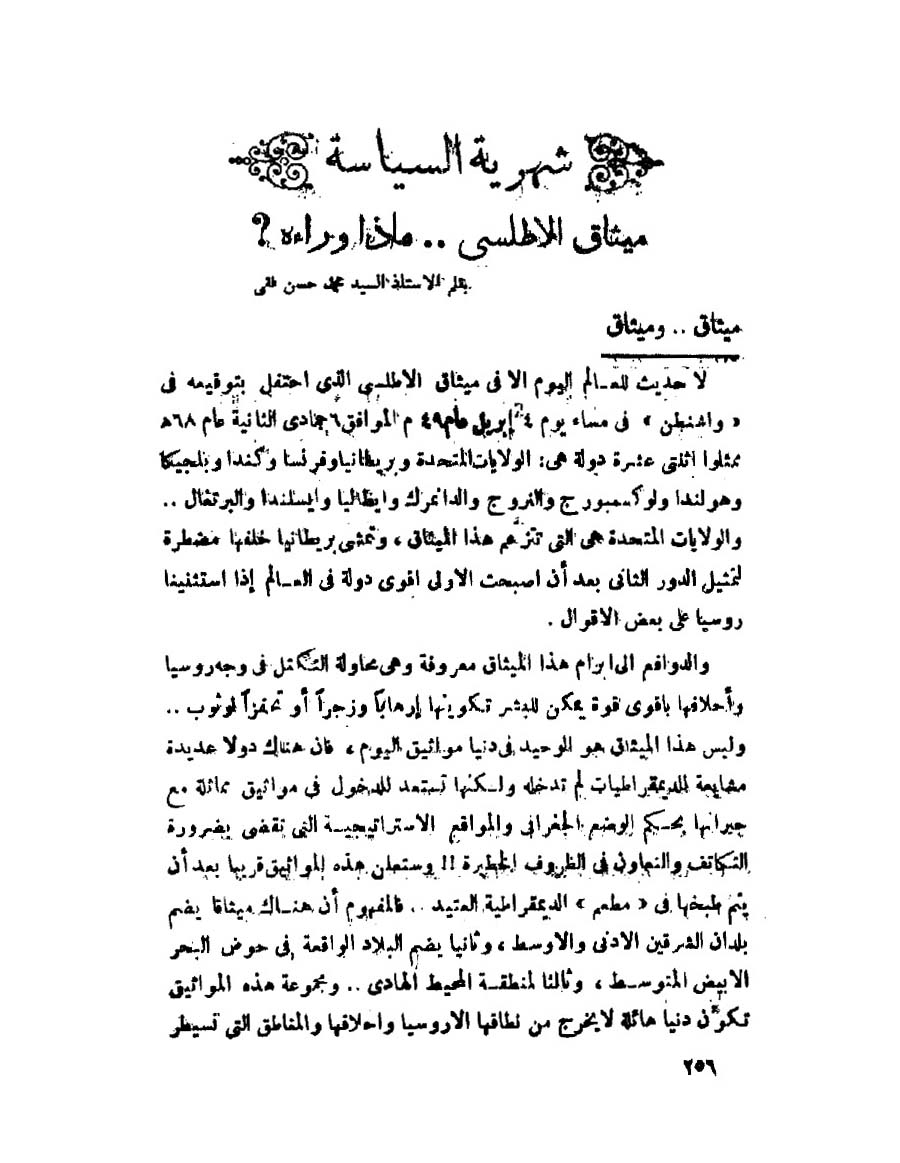 شهرية السياسة
ميثاق الاطلسى .. ماذا وراءه ?
بقلم الاستاذ السيد محمد حسن فقى
ميثاق .. وميثاق
لا حديث للعـالم اليوم الا فى ميثاق الاطلسى الذى احتفل بتوقيعه فى
« واشنطن » فى مساء يوم ٤ إبريل عام ٤٩ م الموافق ٦ جمادى الثانية عام ٦٨ھ
ممثلوا اثلتى عشرة دولة هى: الولايات المتحدة وبريطانيا وفرنسا وكندا وبلجيكا
وهولندا ولوكسمبورج والنروج والدانمرك وايطاليا وايسلندا والبرتغال ..
والولايات المتحدة هى التى تتزعم هذا الميثاق ، وتمشى بريطانيا خلفها مضطرة
لتمثيل الدور الثانى بعد أن اصبحت الاولى اقوى دولة فى العـالم إذا استثنينا
روسيا على بعض الاقوال .
والدوافع الى ابرام هذا الميثاق معروفة وهى محاولة التكتل فى وجه روسيا
وأحلافها باقوى قوة يمكن للبشر تكوينها إرهاباً وزجراً أو تحفزاً لوثوب ..
وليس هذا الميثاق هو الوحيد فى دنيا مواثيق اليوم ، فان هناك دولا عديدة
مشايعة للديمقراطيات لم تدخله ولـكنها تستعد للدخول فى مواثيق مماثلة مع
جيرانها بحـكم الوضع الجغرافى والمواقع الاستراتيجيـة التى تقضى بضرورة
التكاتف والتعاون فى الظروف الخطيرة !! وستعلن هذه المواثيق قريبا بعد أن
يتم طبخها فى « مطعم » الديمقراطية العتيد .. فالمفهوم أن هنـاك ميثاقا يضم
بلدان الشرقين الادنى والاوسط ، وثانيا يضم البلاد الواقعة فى حوض البحر
الابيض المتوسـط ، وثالثا لمنطقـة المحيط الهادى .. ومجموعة هذه المواثيق
تكوّن دنيا هائلة لايخرج من نطاقها الاروسيا واحلافها والمناطق التى تسيطر
٢٥٦